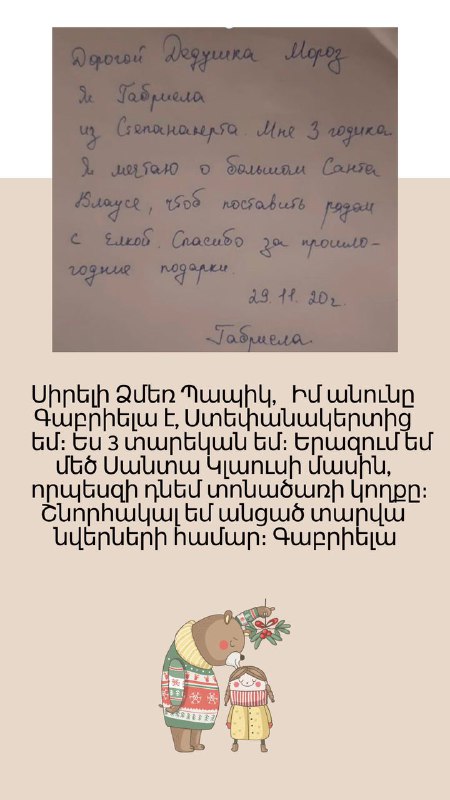 Дорогой Дедушка Мороз
Я Габриела
из Степанакерта. Мне 3 годика
Я мечтаю о большом Санта
Клаусе, чтоб поставить рядом
с елкой. Спасибо за прошло-
годние подарки.
29.11.20г.
Габриела.
Սիրելի Ձմեռ Պապիկ, Իմ անունը
Գաբրիելա է, Ստեփանակերտից
եմ։ Ես 3 տարեկան եմ։ Երազում եմ
մեծ Սանտա Կլաուսի մասին,
որպեսզի դնեմ տոնածառի կողքը։
Շնորհակալ եմ անցած տարվա
նվերների համար։ Գաբրիելա